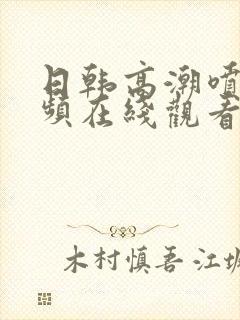 日韩高潮喷
頻在綫觀看
木村慎吾·江坂